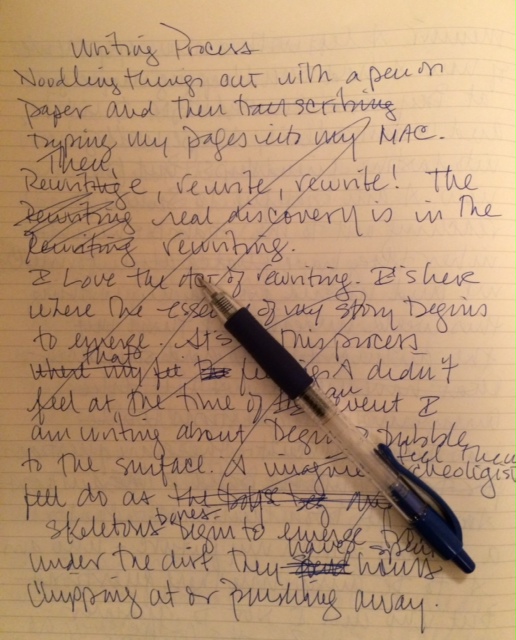 Writing Process
Noodling things out with a pen on
paper and then transcribing
typing my pages into my MAC.
Then,
Rewritinge, rewrite, rewrite! The
Rewriting real discovery is in the
Rewriting rewriting.
I Love the of rewriting. It's here
where the of my story begins
to emerge. It's this process
that's
where my
feel at the time of an event I
am writing about begin bubble
to the surface. I imagine feel
feel do as the
skeletons bones begin to emerge
under the dirt they have spent
hours
chipping at or brushing away.